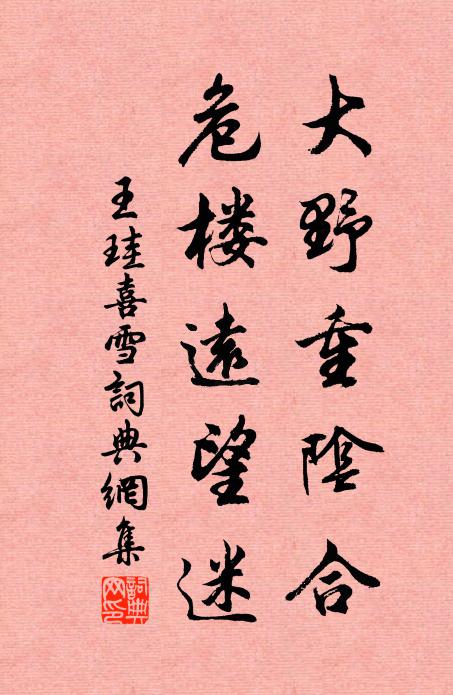 大野重陰合
危楼遠望迷
王珪喜雪詞典網集
詞典網印